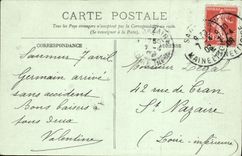 CARTE POSTALE
Tous les pays étrangers n'acceptent pas la Correspondance au recto.
(Se renseigner à la Poste).
CORRESPONDANCE
Saumur 7 avril
Germain arrivé
sans accident
Bons baisers à
tous deux
Valentine
Monsieur
42 rue de
St Nazaire
(Loire-inférieure)